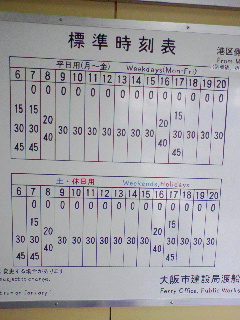 標準時刻表
港区
From M
平日用(月〜金) Weekdays(Mon-Fri)
6 7 8 9 10 11 12 13 14 15 16 17 18 19 20
0 0 0 0 0 0 0 0 0 0 0 0 0 0
15 15 20 20
30 30 30 30 30 30 30 30 30 30 30 30 30
45 45 40 40 45
土・休日用 Weekends,Holidays
6 7 8 9 10 11 12 13 14 15 16 17 18 19 20
0 0 0 0 0 0 0 0 0 0 0 0 0 0
15 15 20 20
30 30 30 30 30 30 30 30 30 30 30 30 30
45 45 40 40 45
変更する場合があります
change.
January
大阪市建設局渡船
Ferry Office, Public Works